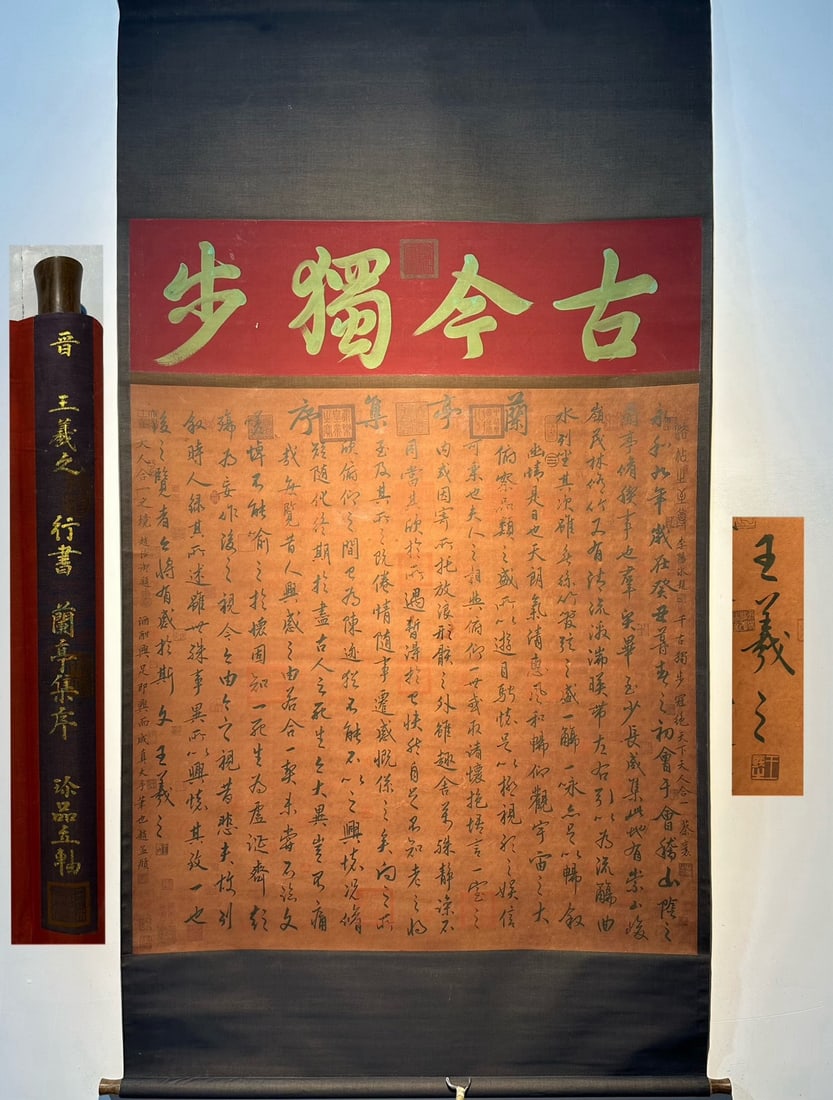 古今獨步
蘭亭集序
千古獨步 冠絕天下天人合一 蔡襄
永和九年歲在癸丑暮春之初會于會稽山陰之
蘭亭脩禊事也羣賢畢至少長咸集此地有崇山峻
嶺茂林脩竹又有清流激湍暎帶左右引以為流觴曲
水列坐其次雖無絲竹管弦之盛一觴一詠亦足以暢敘
幽情是日也天朗氣清惠風和暢仰觀宇宙之大
俯察品類之盛所以遊目騁懷足以極視聽之娛信
可樂也夫人之相與俯仰一世或取諸懷抱悟言一室之
內或因寄所託放浪形骸之外雖趣舍萬殊靜躁不
同當其欣於所遇暫得於己快然自足不知老之將
至及其所之既倦情隨事遷感慨係之矣向之所
欣俯仰之間已為陳迹猶不能不以之興懷況脩
短隨化終期於盡古人云死生亦大矣豈不痛
哉每覽昔人興感之由若合一契未嘗不臨文
嗟悼不能喻之於懷固知一死生為虛誕齊彭
殤為妄作後之視今亦由今之視昔悲夫故列
敘時人錄其所述雖世殊事異所以興懷其致一也
後之覽者亦將有感於斯文 王羲之
天人合一之境
酒酣興足即興而成真天子筆也 趙孟頫
晋 王羲之 行書 蘭亭集序 珍品立軸
王羲之